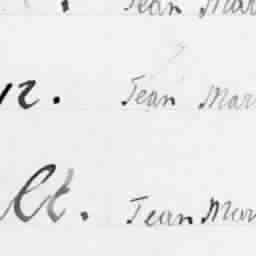 Jean Mar
12. Jean Mar
lt. Jean Mar